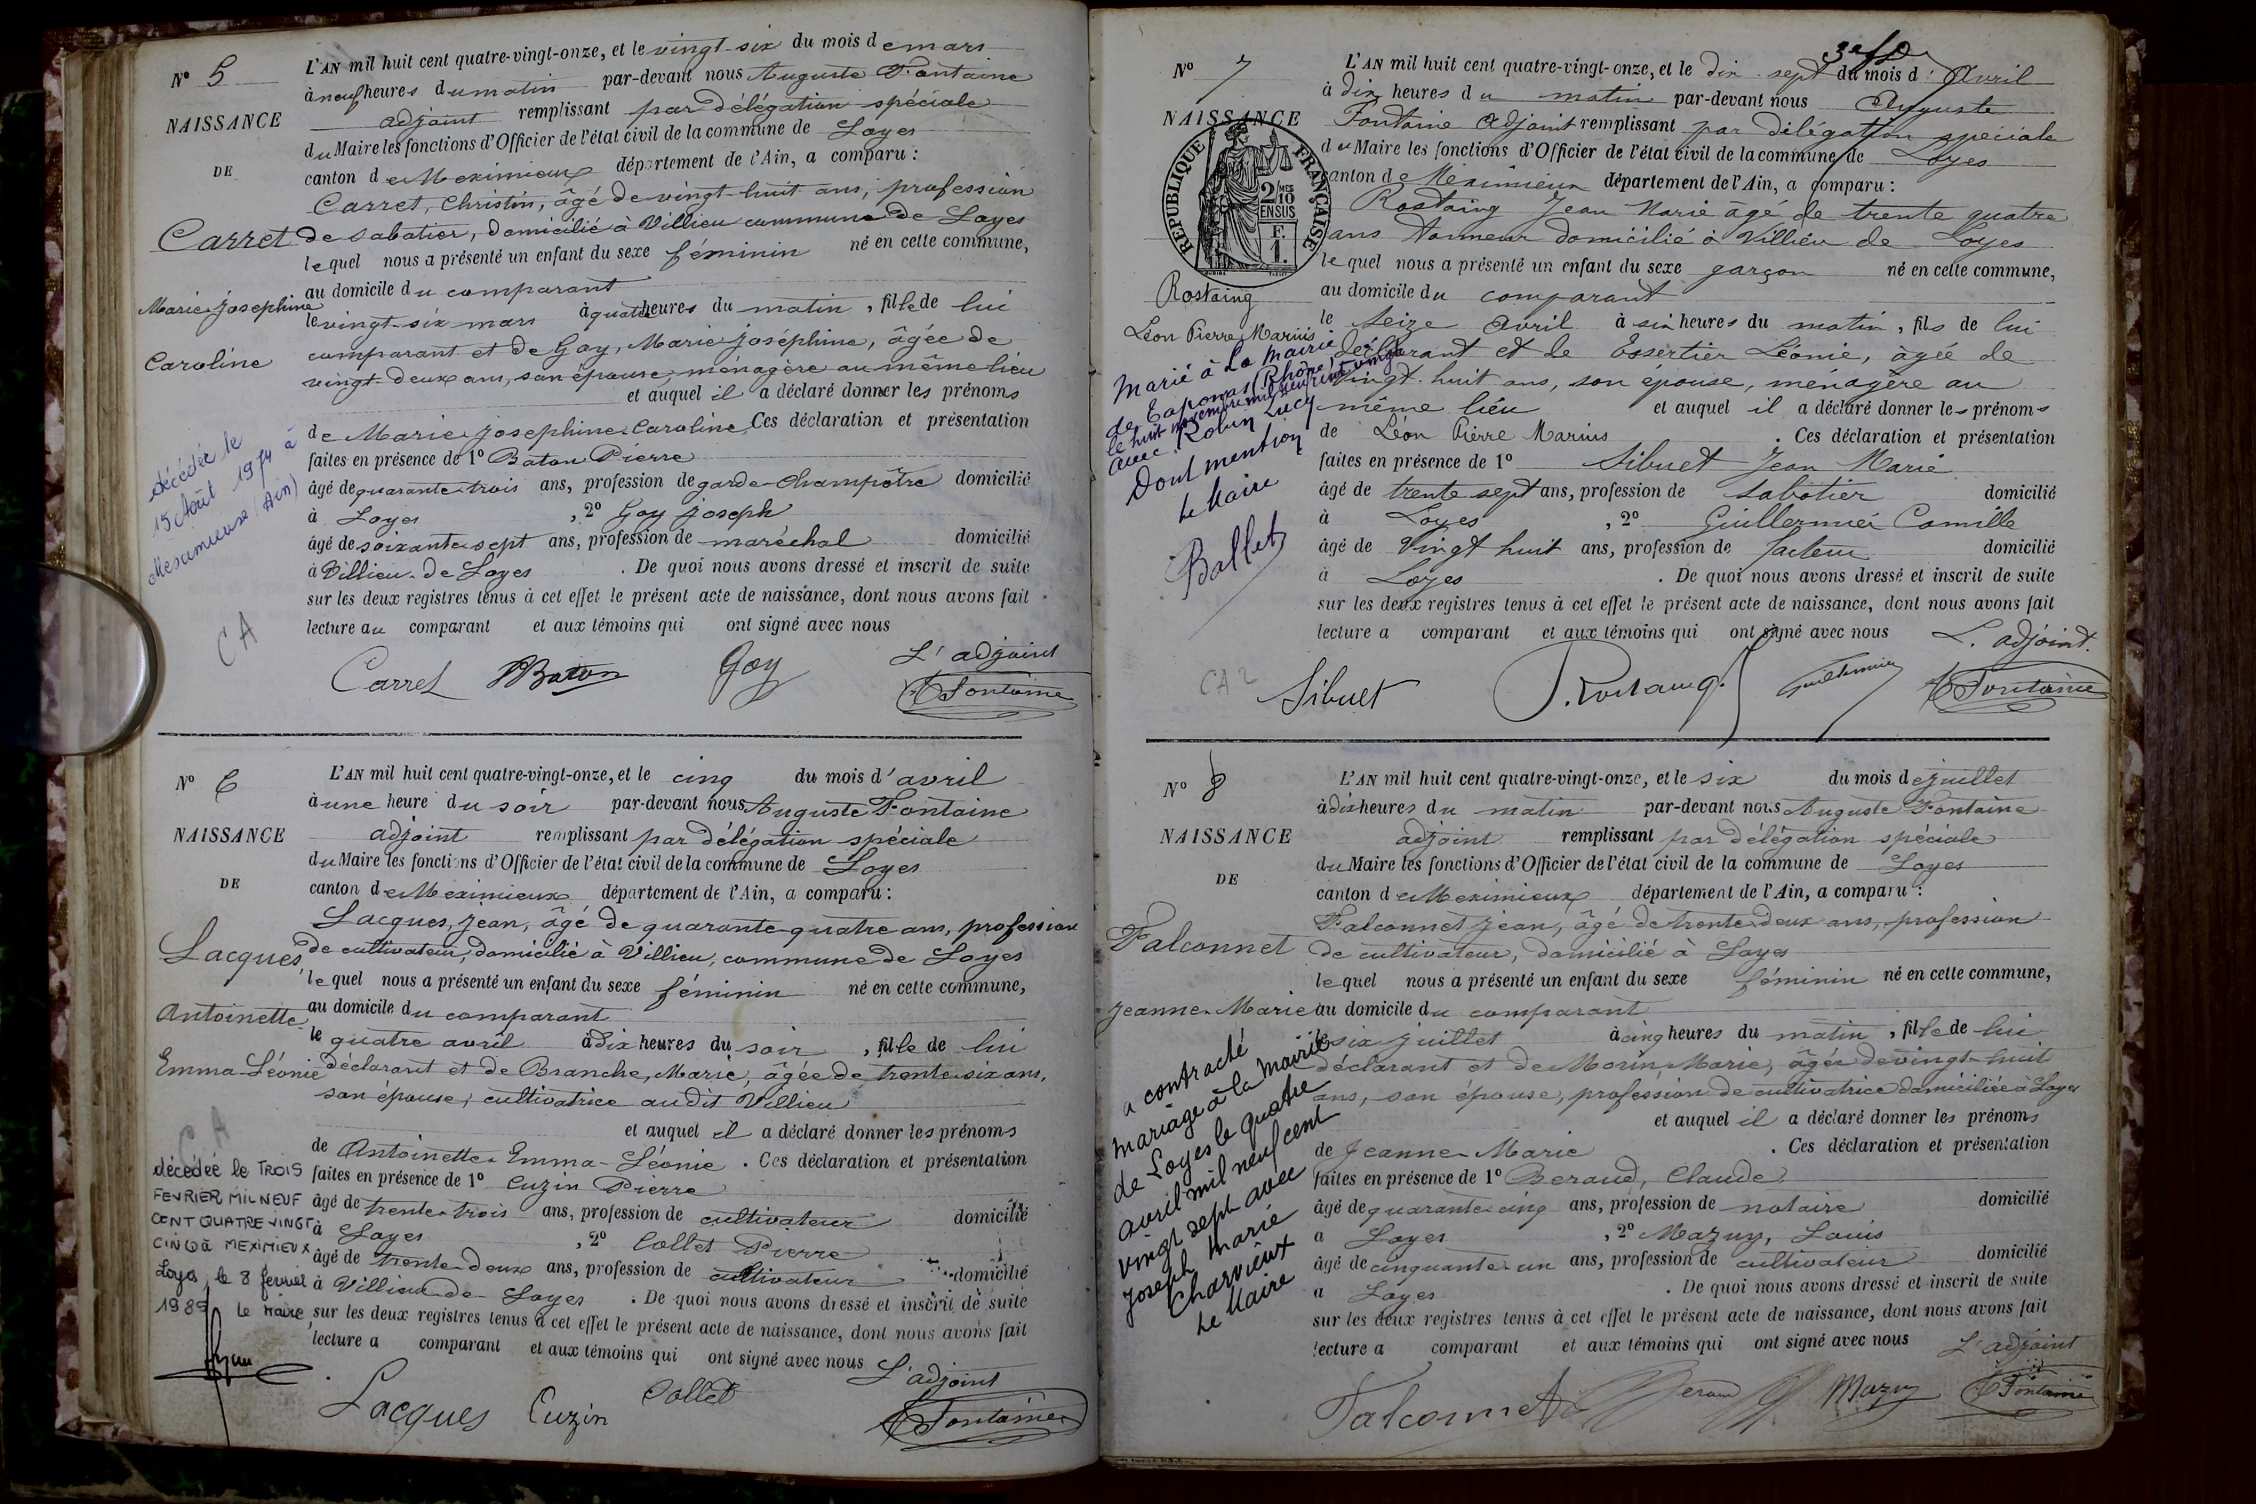 N° 5
NAISSANCE
DE
Carret
Marie Josephine
Caroline
décédée le
15 Août 1974 à
Meximieux (Ain)
CA
L'AN mil huit cent quatre-vingt-onze, et le vingt-six du mois de mars
à neuf heures du matin par-devant nous Auguste Fontaine
adjoint remplissant par délégation spéciale
du Maire les fonctions d'Officier de l'état civil de la commune de Loyes
canton de Meximieux département de l'Ain, a comparu :
Carret, Christin, âgé de vingt-huit ans, profession
de sabotier, domicilié à Villieu commune de Loyes
lequel nous a présenté un enfant du sexe féminin né en cette commune,
au domicile du comparant
le vingt-six mars à quatre heures du matin, fille de lui
comparant et de Goy, Marie Joséphine, âgée de
vingt-deux ans, son épouse, ménagère au même lieu
et auquel il a déclaré donner les prénoms
de Marie Josephine Caroline Ces déclaration et présentation
faites en présence de 1° Baton Pierre
âgé de quarante-trois ans, profession de garde-champêtre domicilié
à Loyes, 2° Goy Joseph
âgé de soixante-sept ans, profession de maréchal domicilié
à Villieu-de Loyes. De quoi nous avons dressé et inscrit de suite
sur les deux registres tenus à cet effet le présent acte de naissance, dont nous avons fait
lecture au comparant et aux témoins qui ont signé avec nous
L'adjoint
Carret Baton Goy Fontaine
N° 6
NAISSANCE
DE
Lacques,
Antoinette
Emma-Léonie
CA
décédée le TROIS
FEVRIER MIL NEUF
CENT QUATRE VINGT
CINQ à MEXIMIEUX
Loyes, le 8 fevrier
198
Le Maire,
L'AN mil huit cent quatre-vingt-onze, et le cinq du mois d'avril
à une heure du soir par-devant nous Auguste Fontaine
adjoint remplissant par délégation spéciale
du Maire les fonctions d'Officier de l'état civil de la commune de Loyes
canton de Meximieux département de l'Ain, a comparu :
Lacques, Jean, âgé de quarante-quatre ans, profession
de cultivateur, domicilié à Villieu, commune de Loyes
lequel nous a présenté un enfant du sexe féminin né en cette commune,
au domicile du comparant
le quatre avril à dix heures du soir, fille de lui
déclarant et de Branche, Marie, âgée de trente-six ans,
son épouse, cultivatrice au dit Villieu
et auquel il a déclaré donner les prénoms
de Antoinette-Emma-Léonie. Ces déclaration et présentation
faites en présence de 1° Cuzin Pierre
âgé de trente-trois ans, profession de cultivateur domicilié
à Loyes, 2° Collet Pierre
âgé de trente-deux ans, profession de cultivateur domicilié
à Villieu-de-Loyes. De quoi nous avons dressé et inscrit de suite
sur les deux registres tenus à cet effet le présent acte de naissance, dont nous avons fait
lecture a comparant et aux témoins qui ont signé avec nous L'adjoint
Lacques Cuzin Collet Fontaine
N° 7
NAISSANCE
REPUBLIQUE FRANÇAISE
2/10 MES
EN SUS
F.
1.
Rostaing
Léon Pierre Marius
Marié à la Mairie
de Taponas (Rhône)
le huit novembre mil neuf cent vingt
avec Robin Lucy
Dont mention
Le Maire
Ballet
CA 2
L'AN mil huit cent quatre-vingt-onze, et le dix-sept du mois d'Avril
à dix heures du matin par-devant nous Auguste
Fontaine Adjoint remplissant par délégation spéciale
du Maire les fonctions d'Officier de l'état civil de la commune de Loyes
canton de Meximieux département de l'Ain, a comparu :
Rostaing Jean Marie âgé de trente quatre
ans domicilié à Villieu de Loyes
lequel nous a présenté un enfant du sexe garçon né en cette commune,
au domicile du comparant
le Seize Avril à six heures du matin, fils de lui
déclarant et de Essertier Léonie, âgée de
vingt-huit ans, son épouse, ménagère au
même lieu et auquel il a déclaré donner les prénoms
de Léon Pierre Marius. Ces déclaration et présentation
faites en présence de 1° Sibuet Jean Marie
âgé de trente sept ans, profession de sabotier domicilié
à Loyes, 2° Guillermier Camille
âgé de Vingt huit ans, profession de facteur domicilié
à Loyes. De quoi nous avons dressé et inscrit de suite
sur les deux registres tenus à cet effet le présent acte de naissance, dont nous avons fait
lecture a comparant et aux témoins qui ont signé avec nous L'adjoint.
Sibuet J. Rostaing Guillermier Fontaine
N° 8
NAISSANCE
DE
Falconnet
Jeanne-Marie
a contracté
mariage à la mairie
de Loyes le quatre
avril mil neuf cent
vingt sept avec
Joseph Marie
Charvieux
Le Maire
L'AN mil huit cent quatre-vingt-onze, et le six du mois de juillet
à dix heures du matin par-devant nous Auguste Fontaine
adjoint remplissant par délégation spéciale
du Maire les fonctions d'Officier de l'état civil de la commune de Loyes
canton de Meximieux département de l'Ain, a comparu :
Falconnet Jean, âgé de trente-deux ans, profession
de cultivateur, domicilié à Loyes
lequel nous a présenté un enfant du sexe féminin né en cette commune,
au domicile du comparant
le six juillet à cinq heures du matin, fille de lui
déclarant et de Morin Marie, âgée de vingt-huit
ans, son épouse, profession de cultivatrice domiciliée à Loyes
et auquel il a déclaré donner les prénoms
de Jeanne-Marie. Ces déclaration et présentation
faites en présence de 1° Beraud, Claude
âgé de quarante-cinq ans, profession de notaire domicilié
a Loyes, 2° Mazuy, Louis
âgé de cinquante-un ans, profession de cultivateur domicilié
a Loyes. De quoi nous avons dressé et inscrit de suite
sur les deux registres tenus à cet effet le présent acte de naissance, dont nous avons fait
lecture a comparant et aux témoins qui ont signé avec nous L'adjoint
Falconnet Beraud Mazuy Fontaine